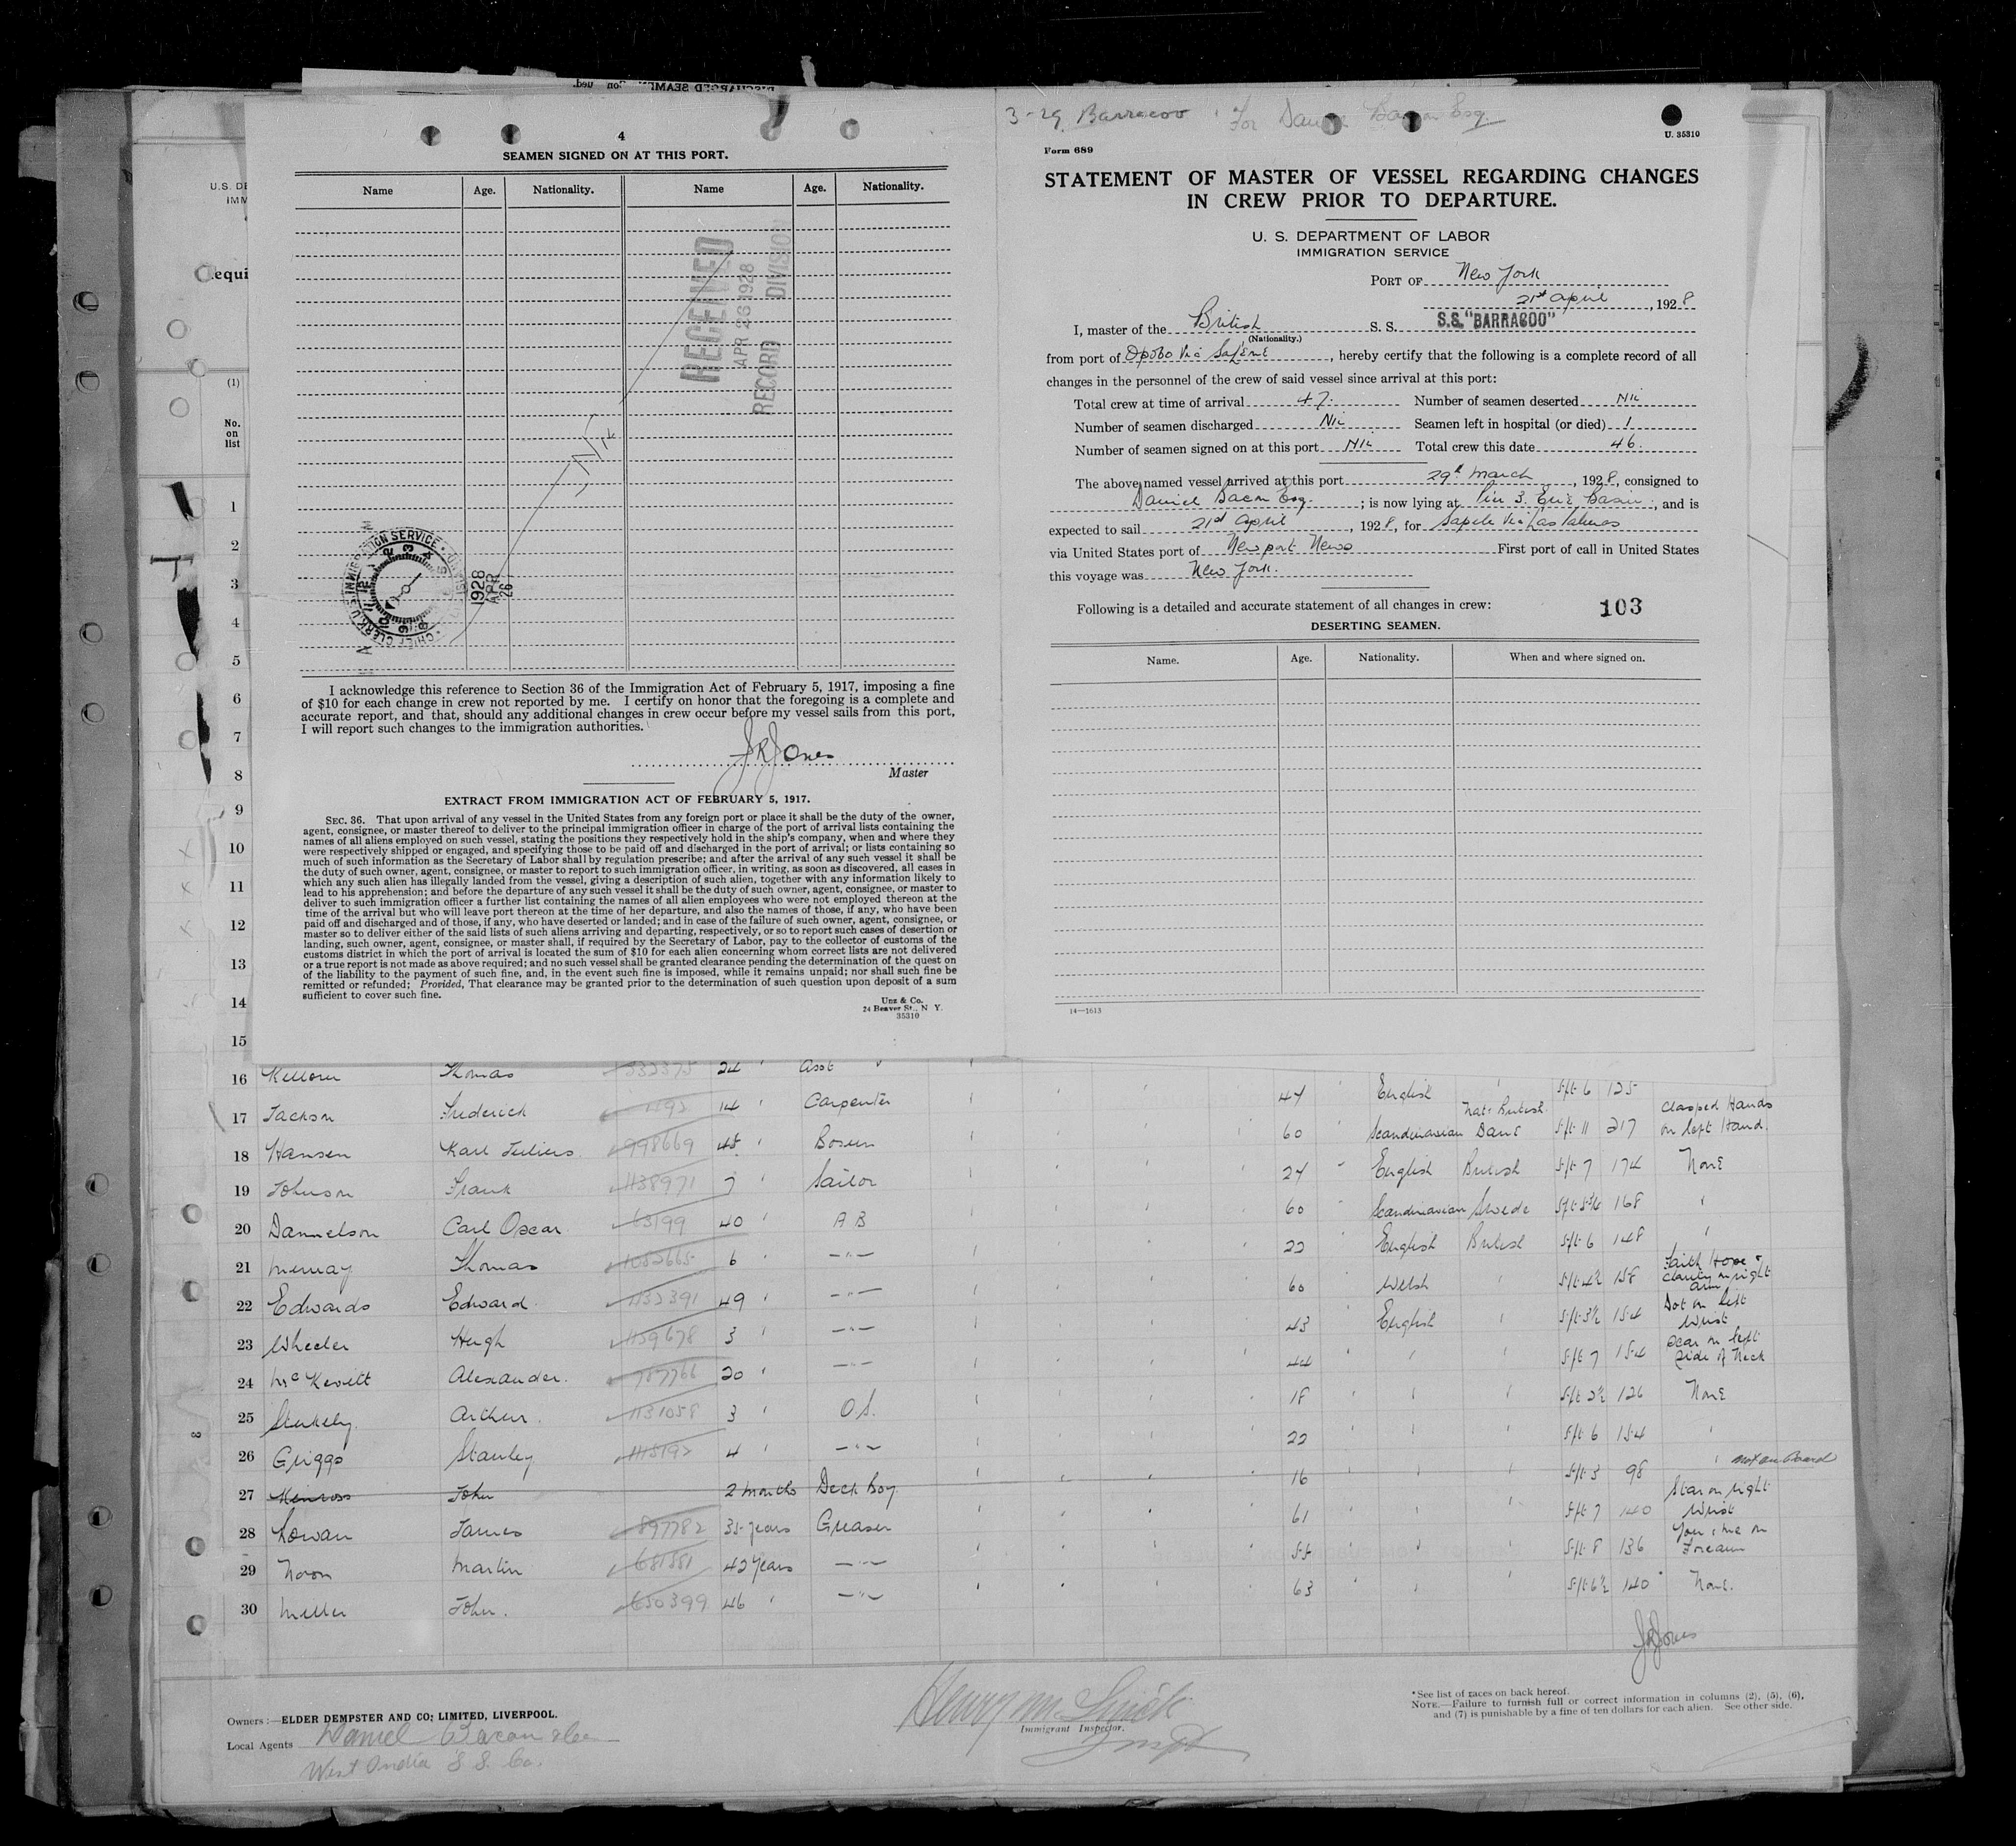 4
SEAMEN SIGNED ON AT THIS PORT.
Name Age. Nationality. Name Age. Nationality.
RECEIVED
APR 26 1928
RECORD DIVISION
Nil
1928
APR
26
I acknowledge this reference to Section 36 of the Immigration Act of February 5, 1917, imposing a fine
of $10 for each change in crew not reported by me. I certify on honor that the foregoing is a complete and
accurate report, and that, should any additional changes in crew occur before my vessel sails from this port,
I will report such changes to the immigration authorities.
JRJones
Master
EXTRACT FROM IMMIGRATION ACT OF FEBRUARY 5, 1917.
SEC. 36. That upon arrival of any vessel in the United States from any foreign port or place it shall be the duty of the owner,
agent, consignee, or master thereof to deliver to the principal immigration officer in charge of the port of arrival lists containing the
names of all aliens employed on such vessel, stating the positions they respectively hold in the ship's company, when and where they
were respectively shipped or engaged, and specifying those to be paid off and discharged in the port of arrival; or lists containing so
much of such information as the Secretary of Labor shall by regulation prescribe; and after the arrival of any such vessel it shall be
the duty of such owner, agent, consignee, or master to report to such immigration officer, in writing, as soon as discovered, all cases in
which any such alien has illegally landed from the vessel, giving a description of such alien, together with any information likely to
lead to his apprehension; and before the departure of any such vessel it shall be the duty of such owner, agent, consignee, or master to
deliver to such immigration officer a further list containing the names of all alien employees who were not employed thereon at the
time of the arrival but who will leave port thereon at the time of her departure, and also the names of those, if any, who have been
paid off and discharged and of those, if any, who have deserted or landed; and in case of the failure of such owner, agent, consignee, or
master so to deliver either of the said lists of such aliens arriving and departing, respectively, or so to report such cases of desertion or
landing, such owner, agent, consignee, or master shall, if required by the Secretary of Labor, pay to the collector of customs of the
customs district in which the port of arrival is located the sum of $10 for each alien concerning whom correct lists are not delivered
or a true report is not made as above required; and no such vessel shall be granted clearance pending the determination of the quest on
of the liability to the payment of such fine, and, in the event such fine is imposed, while it remains unpaid; nor shall such fine be
remitted or refunded; Provided, That clearance may be granted prior to the determination of such question upon deposit of a sum
sufficient to cover such fine.
Unz & Co.
24 Beaver St., N Y.
35310
3-29 Barracoo For Daniel Bacon Esq.
U. 35310
Form 689
STATEMENT OF MASTER OF VESSEL REGARDING CHANGES
IN CREW PRIOR TO DEPARTURE.
U. S. DEPARTMENT OF LABOR
IMMIGRATION SERVICE
PORT OF New York
21st April, 1928
I, master of the British S. S. S.S. "BARRACOO"
(Nationality.)
from port of Opobo Via Sapele, hereby certify that the following is a complete record of all
changes in the personnel of the crew of said vessel since arrival at this port:
Total crew at time of arrival 47. Number of seamen deserted Nil
Number of seamen discharged Nil Seamen left in hospital (or died) 1
Number of seamen signed on at this port Nil Total crew this date 46.
The above named vessel arrived at this port 29th March, 1928, consigned to
Daniel Bacon Esq.; is now lying at Pier 3. Erie Basin, and is
expected to sail 21st April, 1928, for Sapele Via Las Palmas
via United States port of Newport News First port of call in United States
this voyage was New York.
Following is a detailed and accurate statement of all changes in crew: 103
DESERTING SEAMEN.
Name. Age. Nationality. When and where signed on.
14—1613
U.S. DE
IMM
equi
(1)
No.
on
list
1
2
3
4
5
6
7
8
9
10
11
12
13
14
15
16 Thomas 24 Asst
17 Jackson Frederick 14 Carpenter 47 English 5ft 6 125
18 Hansen Karl 998669 45 Bosun 60 Scandinavian Nat. British Dane 5ft 11 217 Clasped Hands on left Hand.
19 Johnson Frank 1138971 7 Sailor 27 English British 5ft 7 174 None
20 Danielson Carl Oscar 63199 40 A B 60 Scandinavian Swede 168
21 Murray Thomas 1052665 6 22 English British 5ft 6 148
22 Edwards Edward 1132391 49 60 Welsh 5ft 4½ 158 Faith Hope & Charity on right arm
23 Wheeler Hugh 1159678 3 43 English 5ft 3½ 154 Dot on left Wrist
24 McKevitt Alexander. 787766 20 44 5ft 7 154 Scar on left side of Neck
25 Arthur. 1131058 3 O.S. 18 5ft 2½ 126 None
26 Griggs Stanley 1115192 4 22 5ft 6 154
27 Kenross John 2 months Deck Boy 16 5ft 3 98 not on board
28 Lowan James 897782 35 years Greaser 61 5ft 7 140 Star on right Wrist
29 Noon Martin 681551 42 years 55 5ft 8 136 You & me on Forearm
30 Miller John. 650399 46 63 5ft 6½ 140 None.
JRJones
Owners:—ELDER DEMPSTER AND CO; LIMITED, LIVERPOOL.
Local Agents Daniel Bacon
West India S S. Co.
Immigrant Inspector.
*See list of races on back hereof.
NOTE.—Failure to furnish full or correct information in columns (2), (5), (6),
and (7) is punishable by a fine of ten dollars for each alien. See other side.